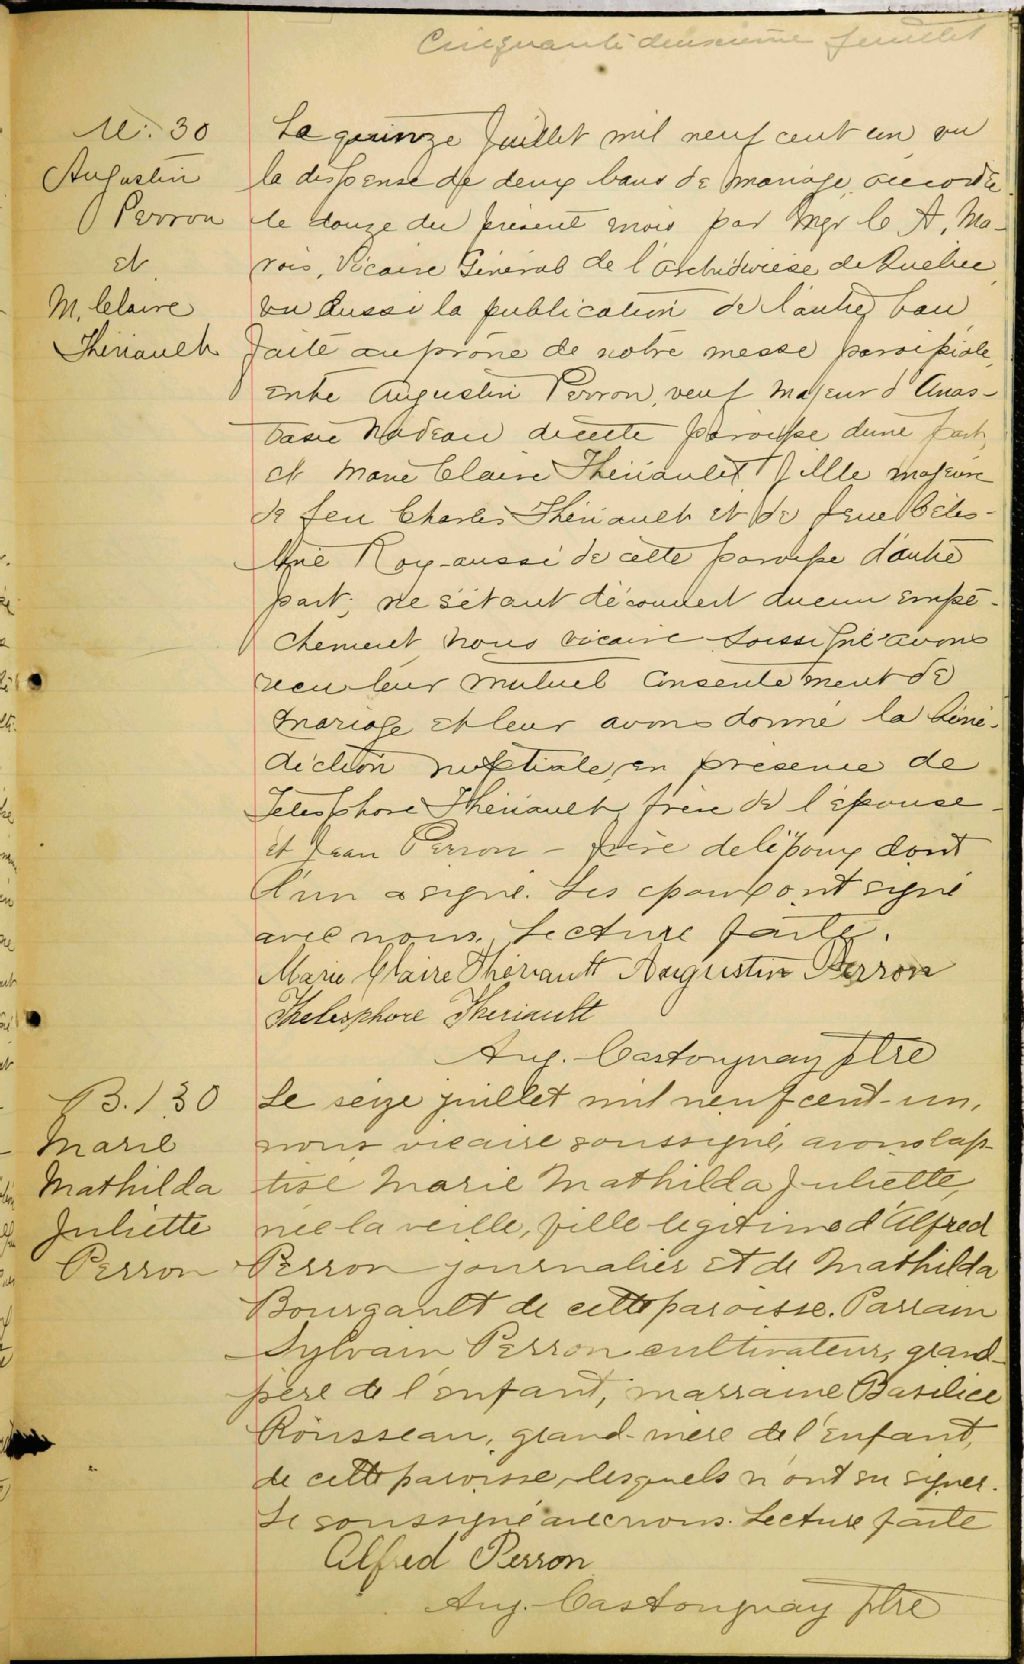 Cinquante deuxième feuillet
M. 30
Augustin
Perron
et
M. Claire
Thériault
Le quinze Juillet mil neuf cent un vu
la dispense de deux bans de mariage accordée
le douze du présent mois par Mgr C. A. Ma-
rois, Vicaire Général de l'archidiocèse de Québec
vu aussi la publication de l'autre ban
faite au prône de notre messe paroissiale,
entre Augustin Perron, veuf majeur d'Anas-
tasie Nadeau de cette paroisse d'une part,
et Marie Claire Thériault fille majeure
de feu Charles Thériault et de feue Céles-
tine Roy aussi de cette paroisse d'autre
part; ne s'étant découvert aucun empê-
chement, nous vicaire soussigné avons
reçu leur mutuel consentement de
mariage et leur avons donné la béné-
diction nuptiale, en présence de
Télesphore Thériault, frère de l'épouse -
et Jean Perron - frère de l'époux dont
l'un a signé. Les époux ont signé
avec nous. Lecture faite.
Marie Claire Thériault Augustin Perron
Thelesphore Theriault
Aug. Castonguay Ptre
B. 130
Marie
Mathilda
Juliette
Perron
Le seize juillet mil neuf cent-un,
nous vicaire soussigné, avons bap-
tisé Marie Mathilda Juliette,
née la veille, fille légitime d'Alfred
Perron journalier et de Mathilda
Bourgault de cette paroisse. Parrain
Sylvain Perron cultivateur, grand-
père de l'enfant, marraine Basilice
Rousseau, grand-mère de l'enfant,
de cette paroisse, lesquels n'ont su signer.
Le soussigné avec nous. Lecture faite
Alfred Perron
Aug. Castonguay Ptre